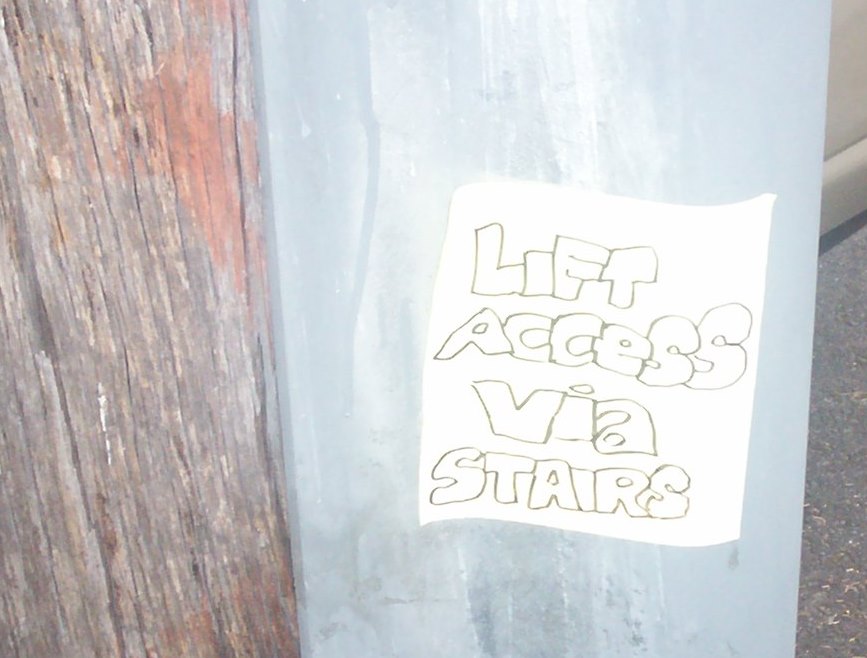 LiFT
ACCeSS
Via
STAiRS